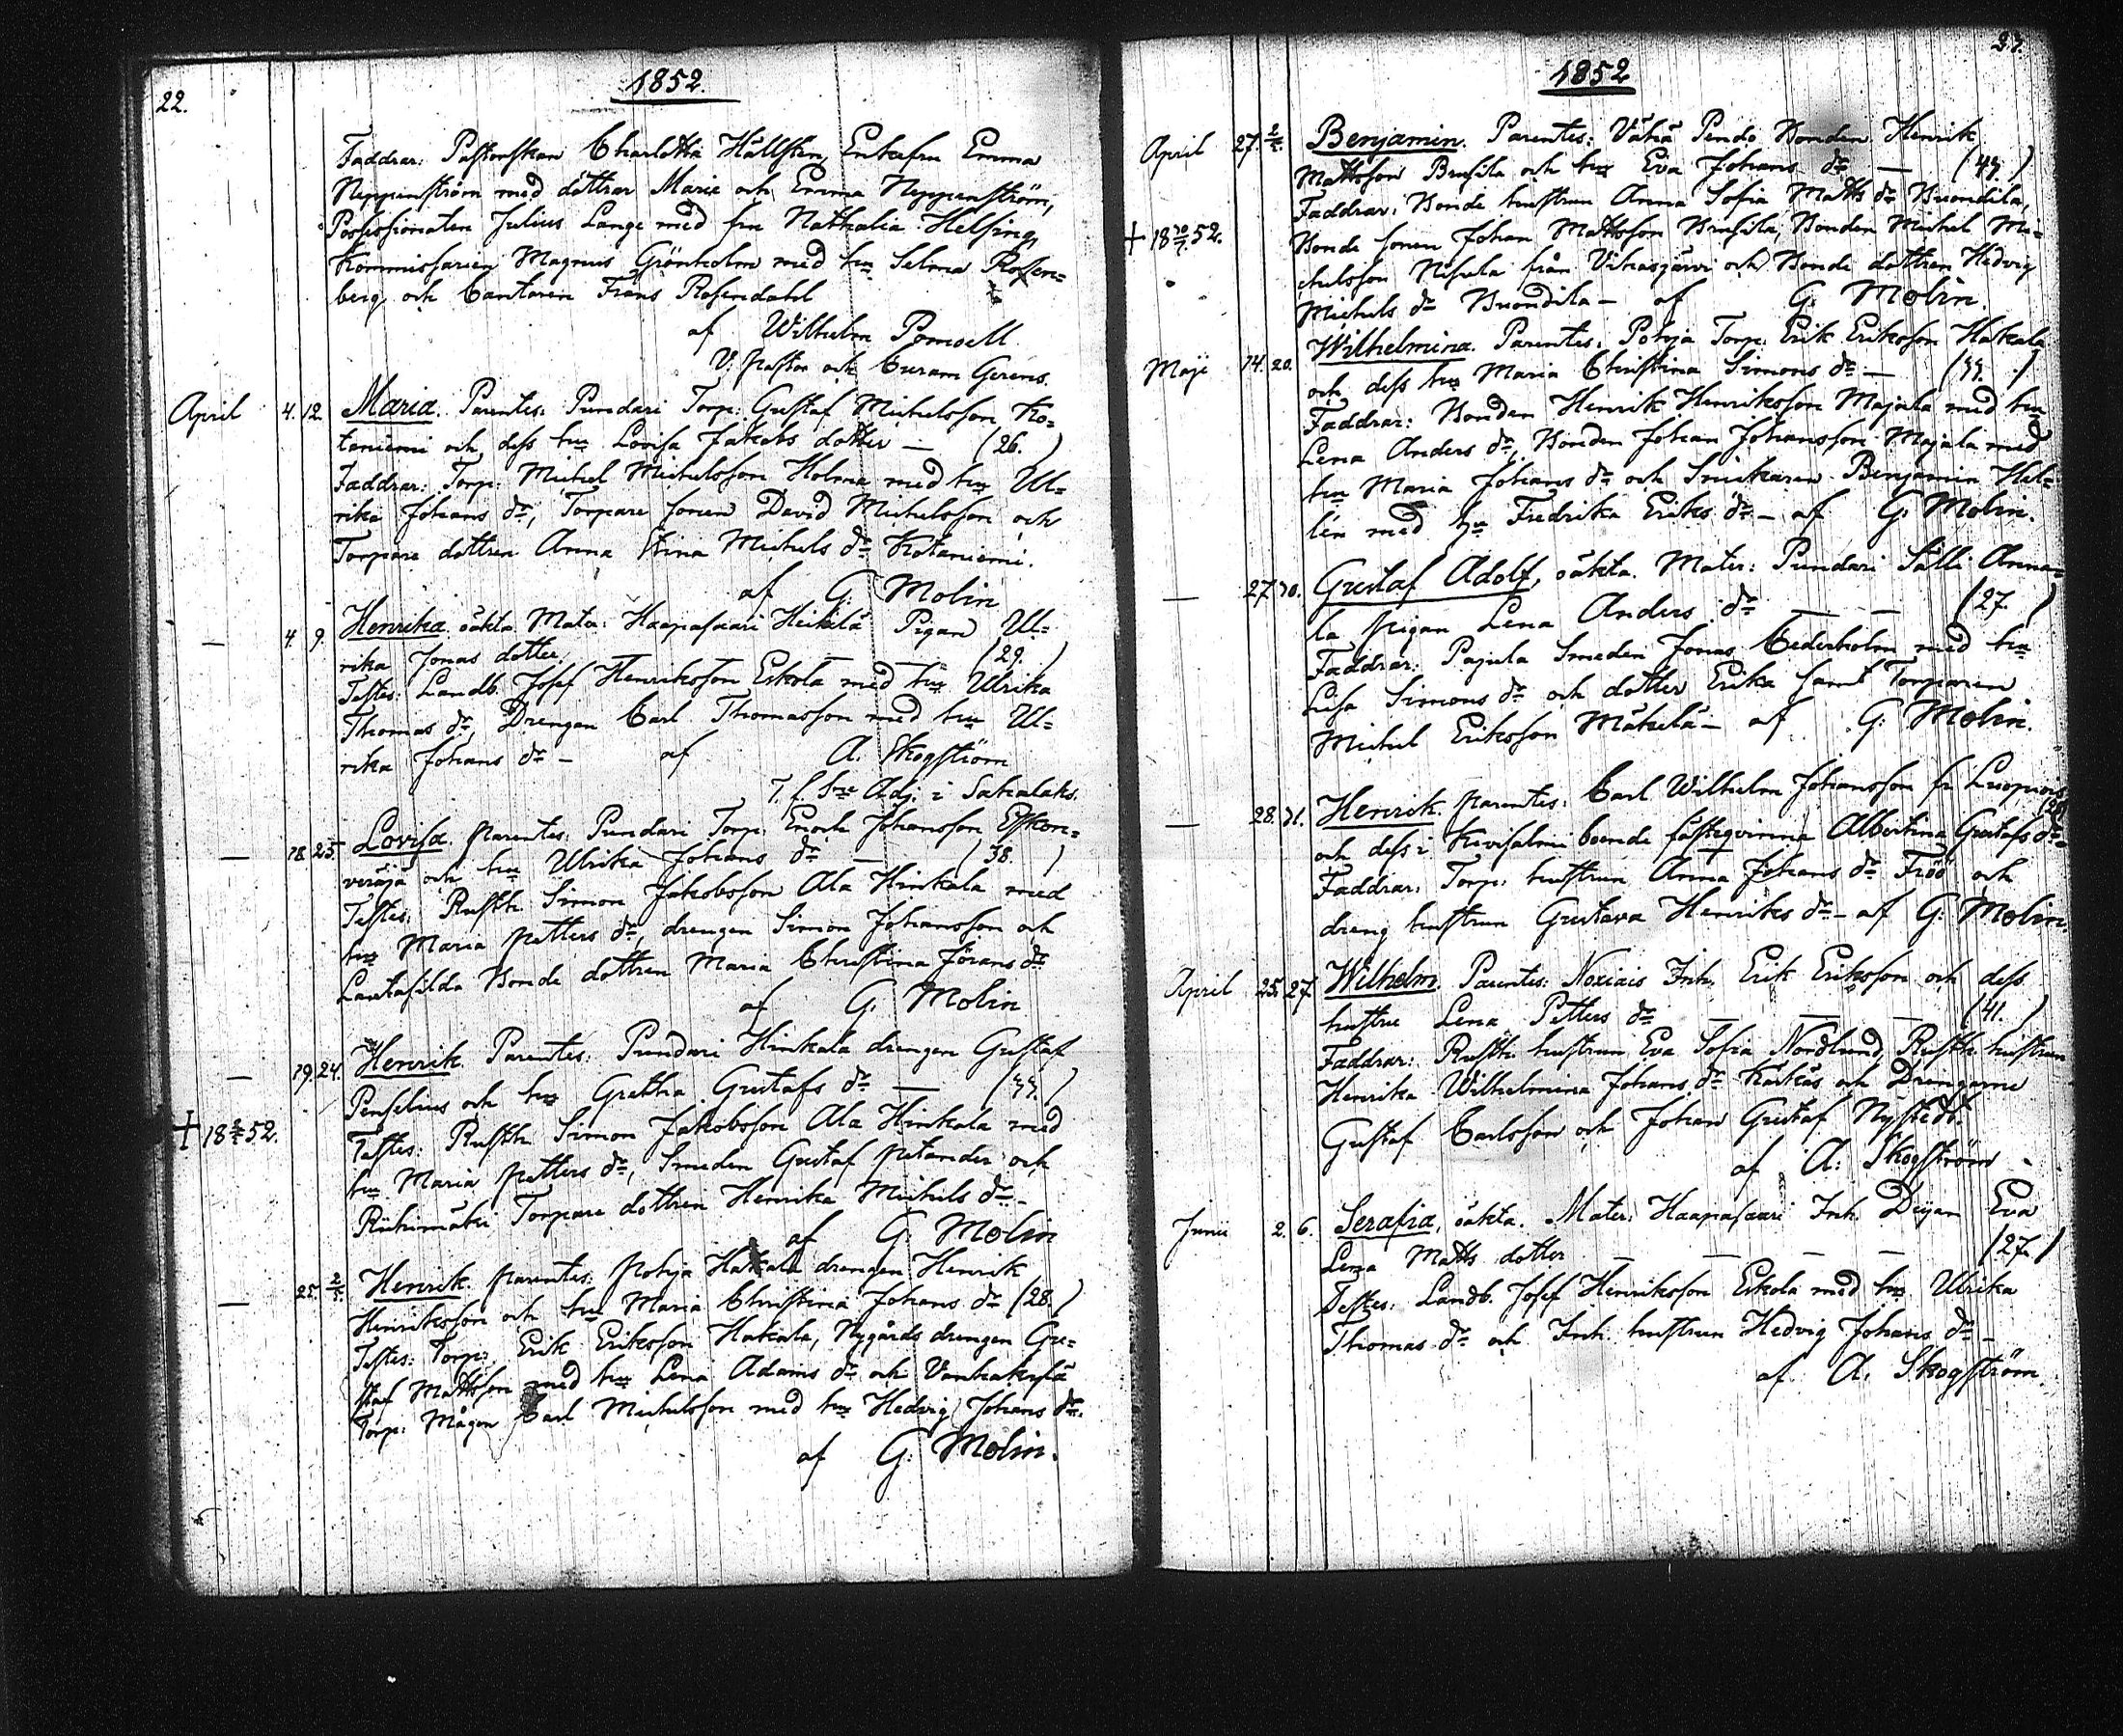 22.
1852.
Faddrar: Pastorskan Charlotta Hällsten, Enkefru Emma
Neppenström med döttrar Maria och Emma Neppenström,
Possessionaten Julius Lange med fru Nathalia Helsing,
Kommissarien Magnus Grönholm med hu Selma Rosen-
berg och Cantorn Frans Rosendahl
af Wilhelm Pomoell
V. pastor och Curam Gerens.
April 4. 12 Maria. Parentes: Pundari Torp: Gustaf Michelsson Ko-
toniemi och dess hu Lovisa Jakobs dotter — (26.)
Faddrar: Torp: Michel Michelsson Holma med hu Ul-
rika Johans dr, Torpare sonen David Michelsson och
Torpare dottren Anna Stina Michels dr Kotaniemi.
af G. Molin
— 4. 9. Henrika oäkta Mater: Haapasaari Heikilä Pigan Ul-
rika Jonas dotter — — (29.)
Testes: Landb. Josef Henriksson Eskola med hu Ulrika
Thomas dr Drengen Carl Thomasson med hu Ul-
rika Johans dr — af A. Skogström
Adj. i Sahalaks.
— 18. 25. Lovisa. parentes: Pundari Torp: Enoch Johansson
och hu Ulrika Johans dr — (38.)
Testes: Rusth. Simon Jakobsson Ala Hinkala med
hu Maria petters dr, drengen Simon Johansson och
Bonde dottren Maria Christina Jörans dr
af G. Molin
— 19. 24. Henrik. Parentes: Pundari Hinkala drengen Gustaf
Penselius och hu Gretha Gustafs dr — (44.)
+ 18 52. Testes: Rusth. Simon Jakobsson Ala Hinkala med
hu Maria petters dr, Smeden Gustaf petander och
Riihimäki Torpare dottren Henrika Michels dr —
af G. Molin
— 25. 2/5. Henrik. parentes: pohja Hakala drengen Henrik
Henriksson och hu Maria Christina Johans dr (28.)
Testes: Torp: Erik Eriksson Hakala, Nygårds drengen Gu-
staf Mattsson med hu Lena Adams dr och Vanhakylä
Torp: Mågen Carl Michelsson med hu Hedvig Johans dr.
af G. Molin.
23.
1852
April 27. 2/5. Benjamin. Parentes: Vähä Pendo Bonden Henrik
Mattsson Brusila och hu Eva Johans dr — (44.)
Faddrar: Bonde hustrun Anna Sofia Matts dr Buondila,
+ 18 52. Bonde sonen Johan Mattsson Brusila, Bonden Michel Mi-
chelsson Nisula från Vihasjärvi och Bonde dottren Hedvig
Michels dr Buondila — af G. Molin.
Maji 14. 20. Wilhelmina. Parentes: Pohja Torp: Erik Eriksson Hakala
och dess hu Maria Christina Simons dr — (44.)
Faddrar: Bonden Henrik Henriksson Majala med hu
Lena Anders dr, Bonden Johan Johansson Majala med
hu Maria Johans dr och Snickaren Benjamin Hel-
lén med hu Fredrika Eriks dr — af G. Molin.
— 27. 30. Gustaf Adolf, oäkta. Mater: Pundari Sälli Anna-
la pigan Lena Anders dr — — (27.)
Faddrar: Pajula Smeden Jonas Cederholm med hu
Lisa Simons dr och dotter Erika samt Torparen
Michel Eriksson Mäkelä — af G. Molin.
— 28. 31. Henrik. parentes: Carl Wilhelm Johansson fr Luopiois
och dess i Kivisalmi boende fästeqvinna Albertina Gustafs dr (28.)
Faddrar: Torp: hustrun Anna Johans dr Fröö och
dreng hustrun Gustava Henriks dr — af G. Molin.
April 25. 27. Wilhelm. Parentes: Noxiais Inh. Erik Eriksson och dess
hustru Lena Petters dr — — — (41.)
Faddrar: Rusth. hustrun Eva Sofia Nordlund, Rusth. hustrun
Henrika Wilhelmina Johans dr Karkas och Drengarne
Gustaf Carlsson och Johan Gustaf Nystedt.
af A. Skogström
Junii 2. 6. Serafia, oäkta. Mater: Haapasaari Inh. Piigan Eva
Lena Matts dotter — — — — (27.)
Testes: Landb. Josef Henriksson Eskola med hu Ulrika
Thomas dr och Inh. hustrun Hedvig Johans dr —
af A. Skogström.